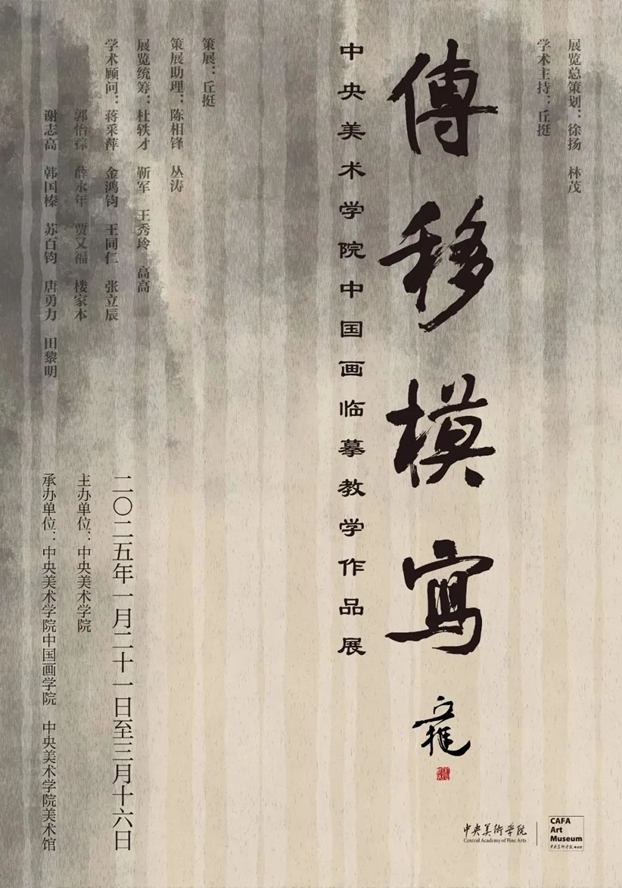 展览总策划：徐扬　林茂
学术主持：丘挺
傳移模寫
中央美术学院中国画临摹教学作品展
策展：丘挺
策展助理：陈相锋　丛涛
展览统筹：杜轶才　靳军　王秀玲　高高
学术顾问：蒋采萍　金鸿钧　王同仁　张立辰
郭怡孮　薛永年　贾又福　楼家本
谢志高　韩国榛　苏百钧　唐勇力　田黎明
二〇二五年一月二十一日至三月十六日
主办单位：中央美术学院
承办单位：中央美术学院中国画学院　中央美术学院美术馆
中央美術学院
Central Academy of Fine Arts
CAFA
Art
Museum
中央美術学院